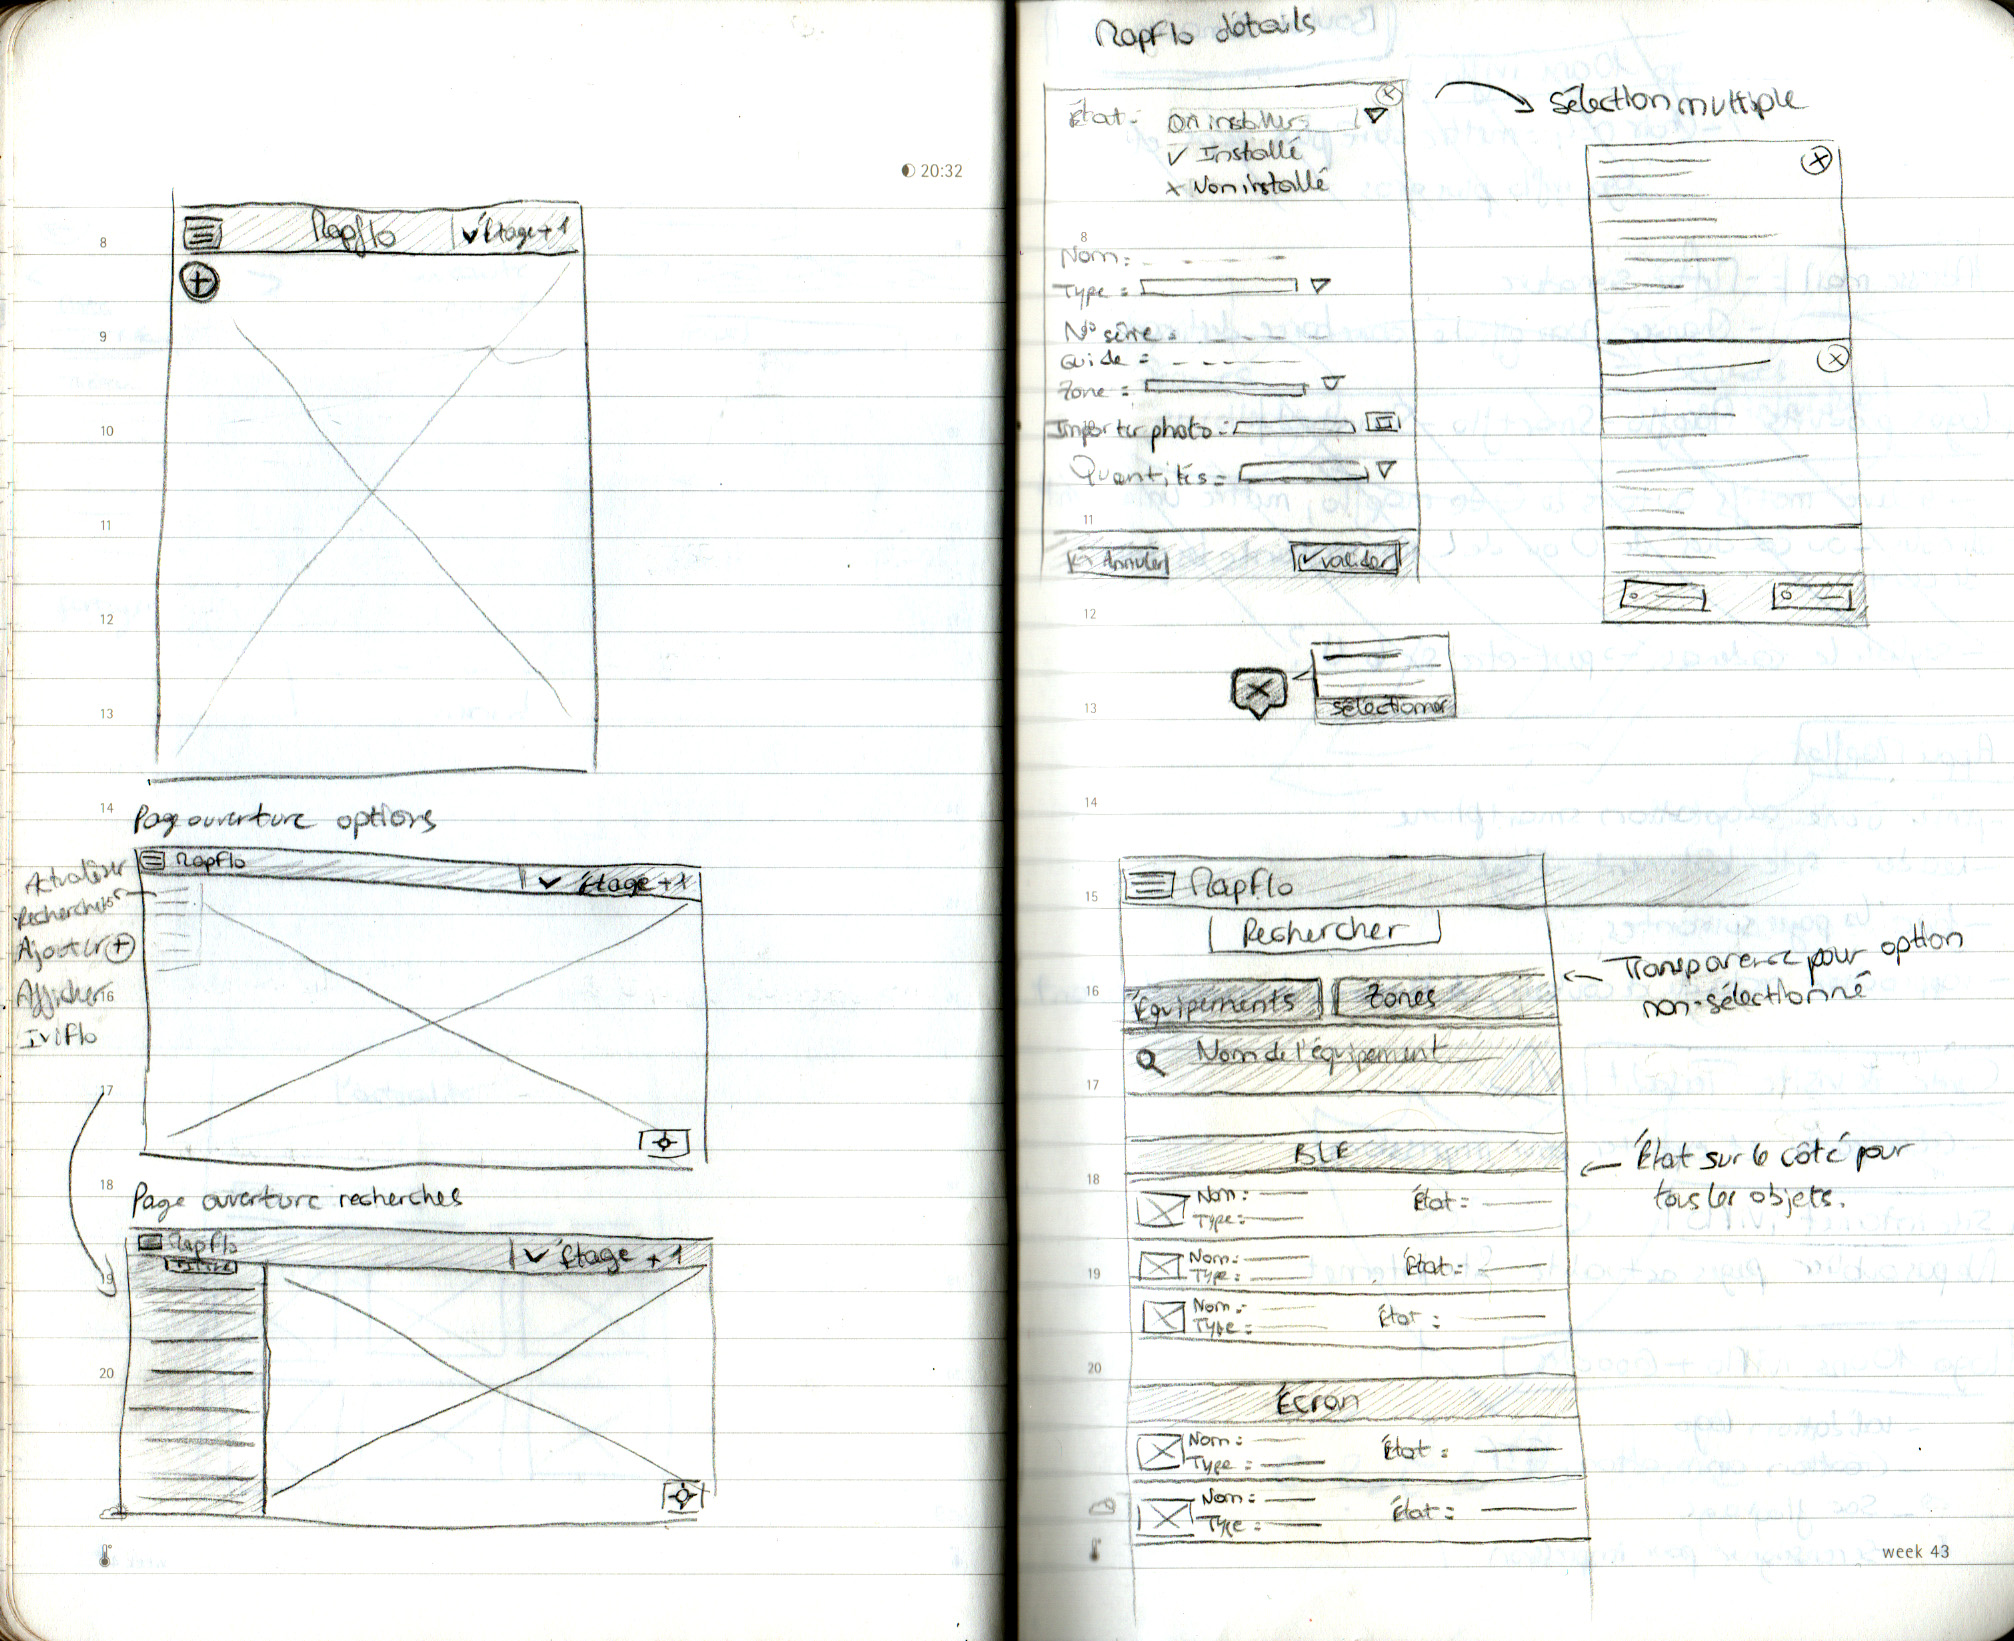 20:32
8
9
10
11
12
13
14
16
17
18
19
20
Mapflo
Étage +1
Page ouverture options
Mapflo
Étage +1
Actualiser
Recherches
Ajouter +
Afficher
Page ouverture recherches
Mapflo
Étage +1
Mapflo détails
État :
✓ Installé
x Non installé
Sélection multiple
8
Nom :
Type :
N° série :
Guide :
Zone :
Importer photo :
Quantités :
11
Annuler
✓ valider
12
sélectionner
13
14
15
Mapflo
Rechercher
16
Équipements
Zones
Transparence pour option
non-sélectionné
Nom de l'équipement
17
BLE
État sur le côté pour
tous les objets.
18
Nom :
Type :
État :
Nom :
Type :
État :
19
Nom :
Type :
État :
20
Écran
Nom :
Type :
État :
Nom :
Type :
État :
week 43